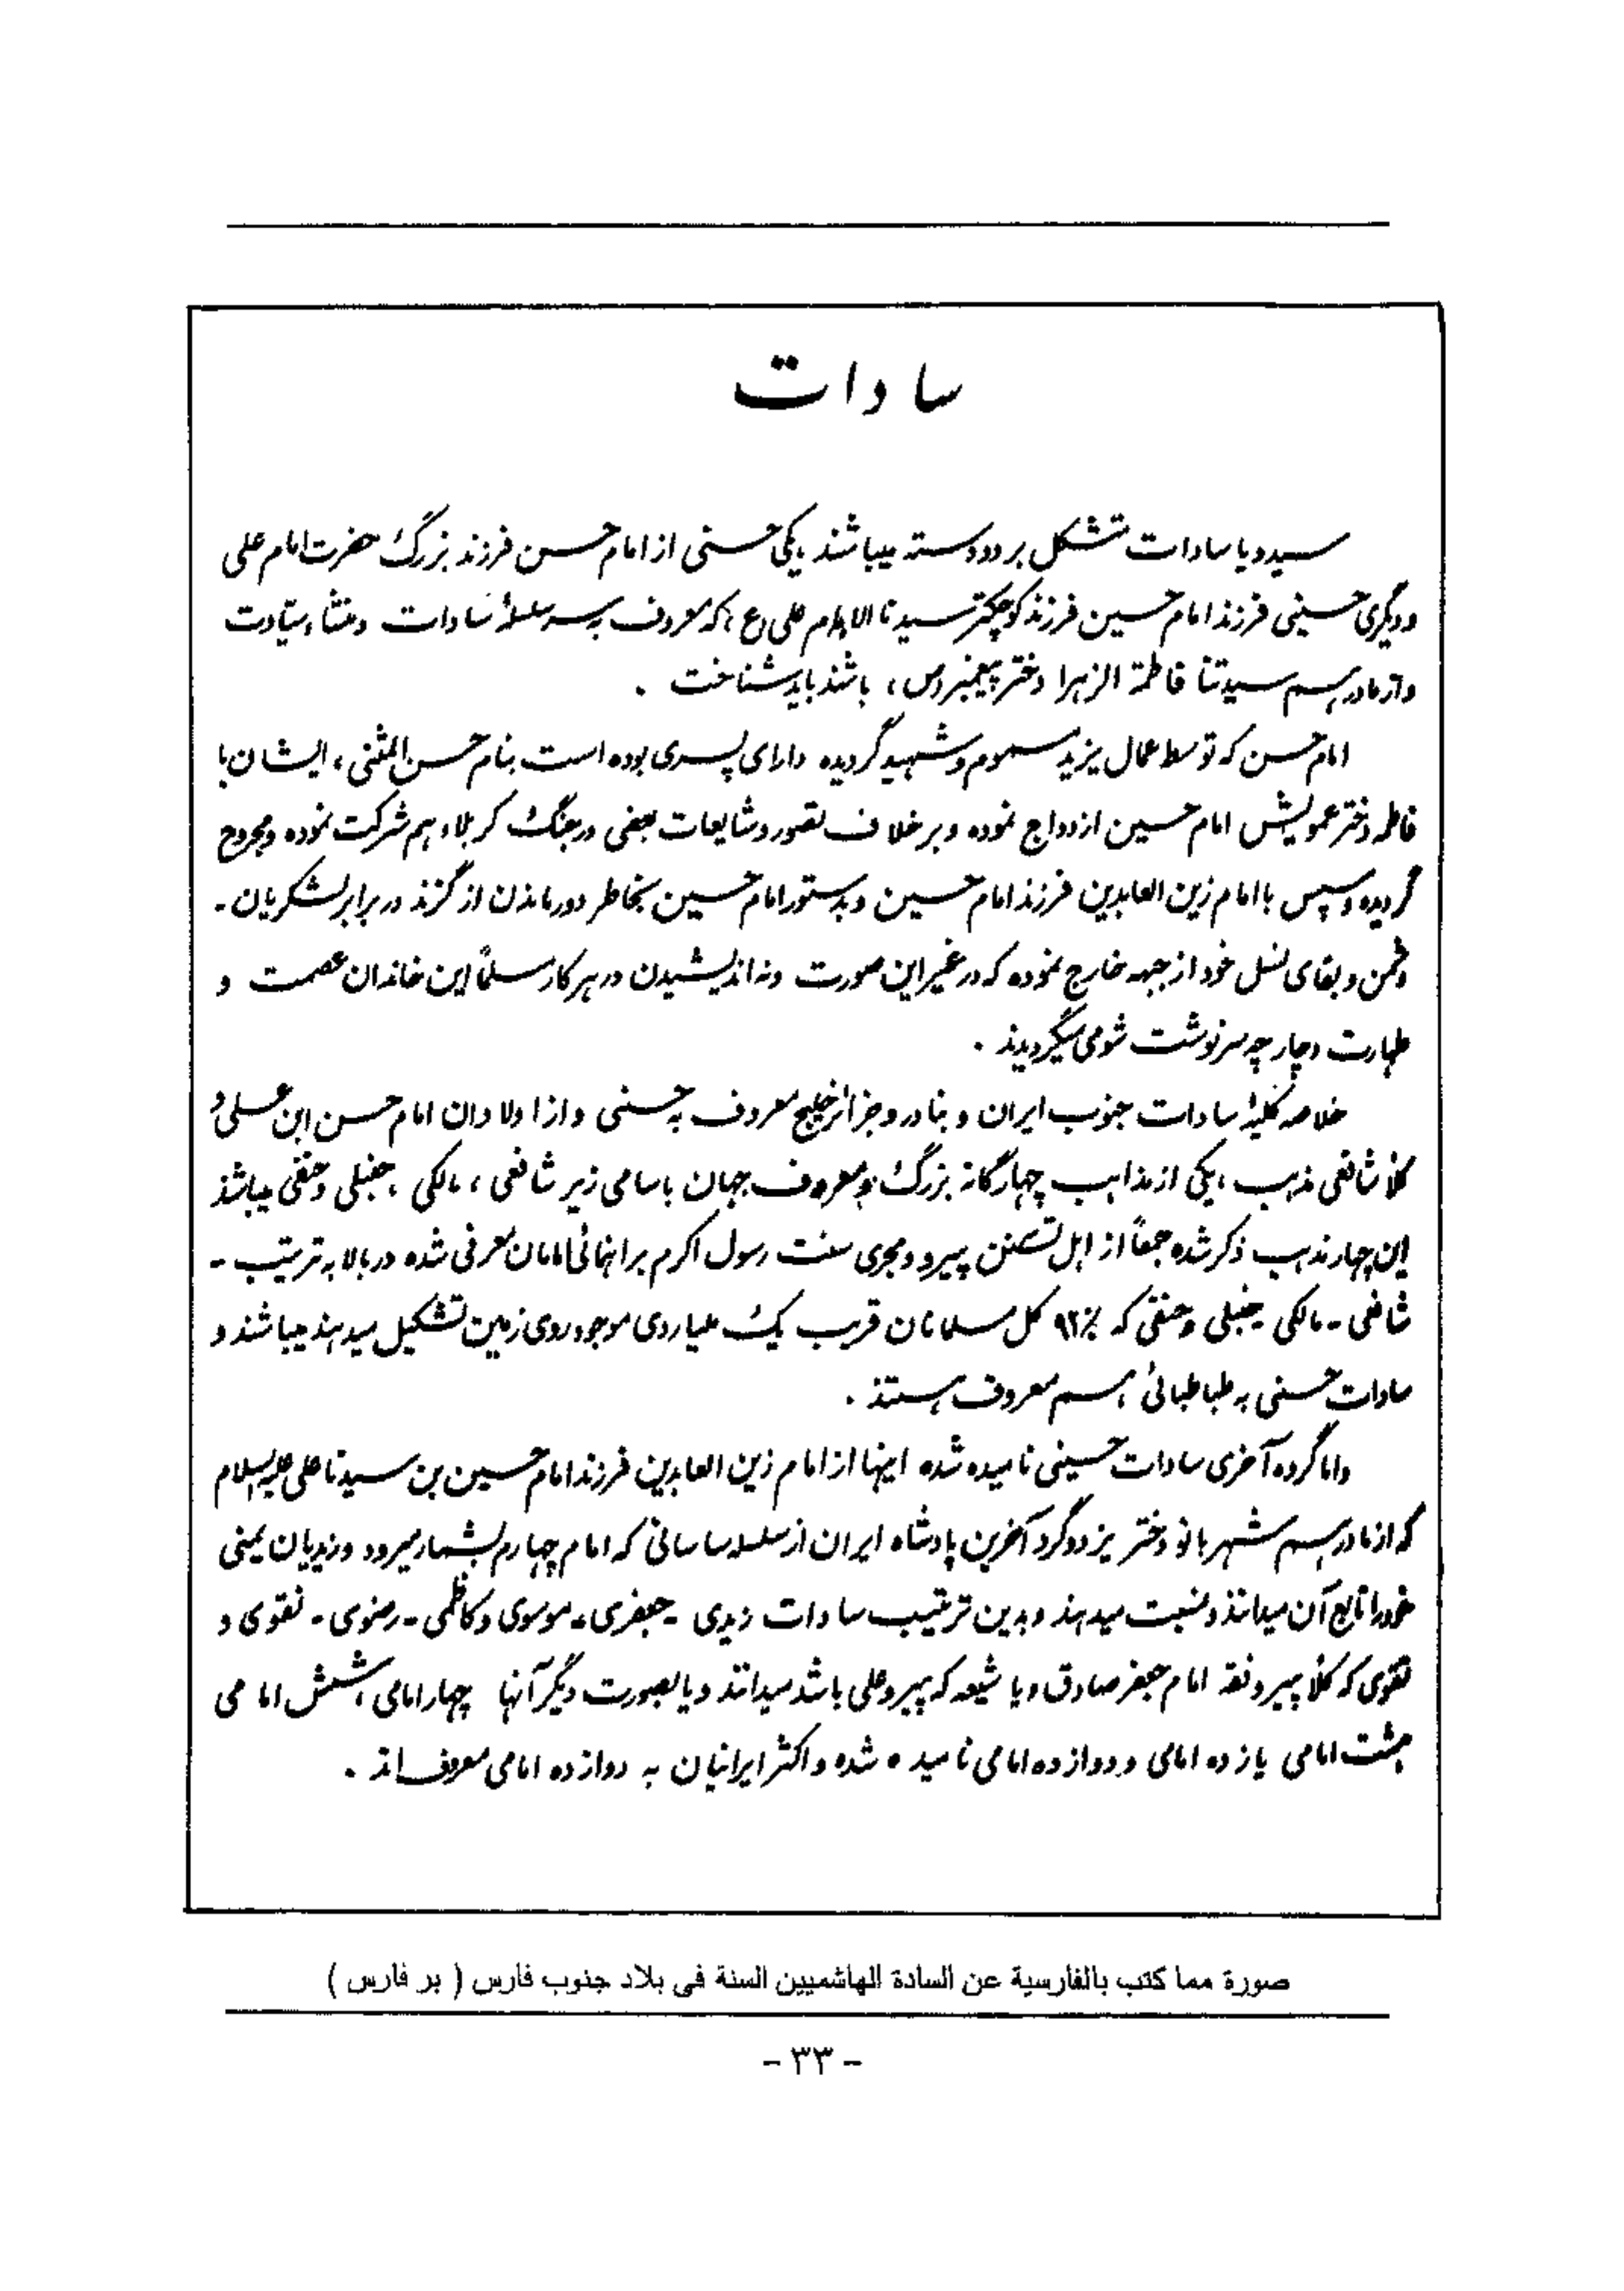 سادات
سید و یا سادات تشکل بر دو دسته میباشند یکی حسنی از امام حسن فرزند بزرگ حضرت امام علی
و دیگری حسینی فرزند امام حسین فرزند کوچکتر سیدنا الامام علی (ع) که معروف به سرسلسلهٔ سادات و منشاء سیادت
و از مادر هم سیدتنا فاطمة الزهرا دختر پیغمبر (ص) باشند باید شناخت .
امام حسن که توسط عمال یزید مسموم و شهید گردیده دارای پسری بوده است بنام حسن المثنی ، ایشان با
فاطمه دختر عمویش امام حسین ازدواج نموده و بر خلاف تصور و شایعات بعضی در جنگ کربلاء هم شرکت نموده و مجروح
گردیده و سپس با امام زین العابدین فرزند امام حسین و بدستور امام حسین بخاطر دور ماندن از گزند در برابر لشکریان -
دشمن و بقای نسل خود از جبهه خارج نموده که در غیر این صورت و نه اندیشیدن در هر کار مسلماً این خاندان عصمت و
طهارت دچار چه سرنوشت شومی میگردیدند .
خلاصه کلیهٔ سادات جنوب ایران و بنادر و جزائر خلیج معروف به حسنی و از اولادان امام حسن ابن علی و
کلاً شافعی مذهب ، یکی از مذاهب چهارگانه بزرگ و معروف جهان باسامی زیر شافعی ، مالکی ، حنبلی و حنفی میباشند
این چهار مذهب ذکر شده جمعاً از اهل تسنن پیرو و مجری سنت رسول اکرم براهنمائی امامان معرفی شده در بالا به ترتیب -
شافعی - مالکی - حنبلی و حنفی که ۹۲٪ کل مسلمانان قریب یک ملیاردی موجود روی زمین تشکیل میدهند میباشند و
سادات حسنی به طباطبائی هم معروف هستند .
و اما گروه آخری سادات حسینی نامیده شده اینها از امام زین العابدین فرزند امام حسین بن سیدنا علی علیه السلام
که از مادر هم شهربانو دختر یزدگرد آخرین پادشاه ایران از سلسله ساسانی که امام چهارم بشمار میرود و زیدیان یمنی
خود را تابع آن میدانند و نسبت میدهند و بدین ترتیب سادات زیدی - جعفری - موسوی و کاظمی - رضوی - نقوی و
تقوی که کلاً پیرو فقه امام جعفر صادق و یا شیعه که پیرو علی باشد میدانند و یا بصورت دیگر آنها چهار امامی ، شش امامی
هشت امامی یازده امامی و دوازده امامی نامیده شده و اکثر ایرانیان به دوازده امامی معروف اند .
صورة مما كتب بالفارسية عن السادة الهاشميين السنة فى بلاد جنوب فارس ( بر فارس )
- ٣٣ -